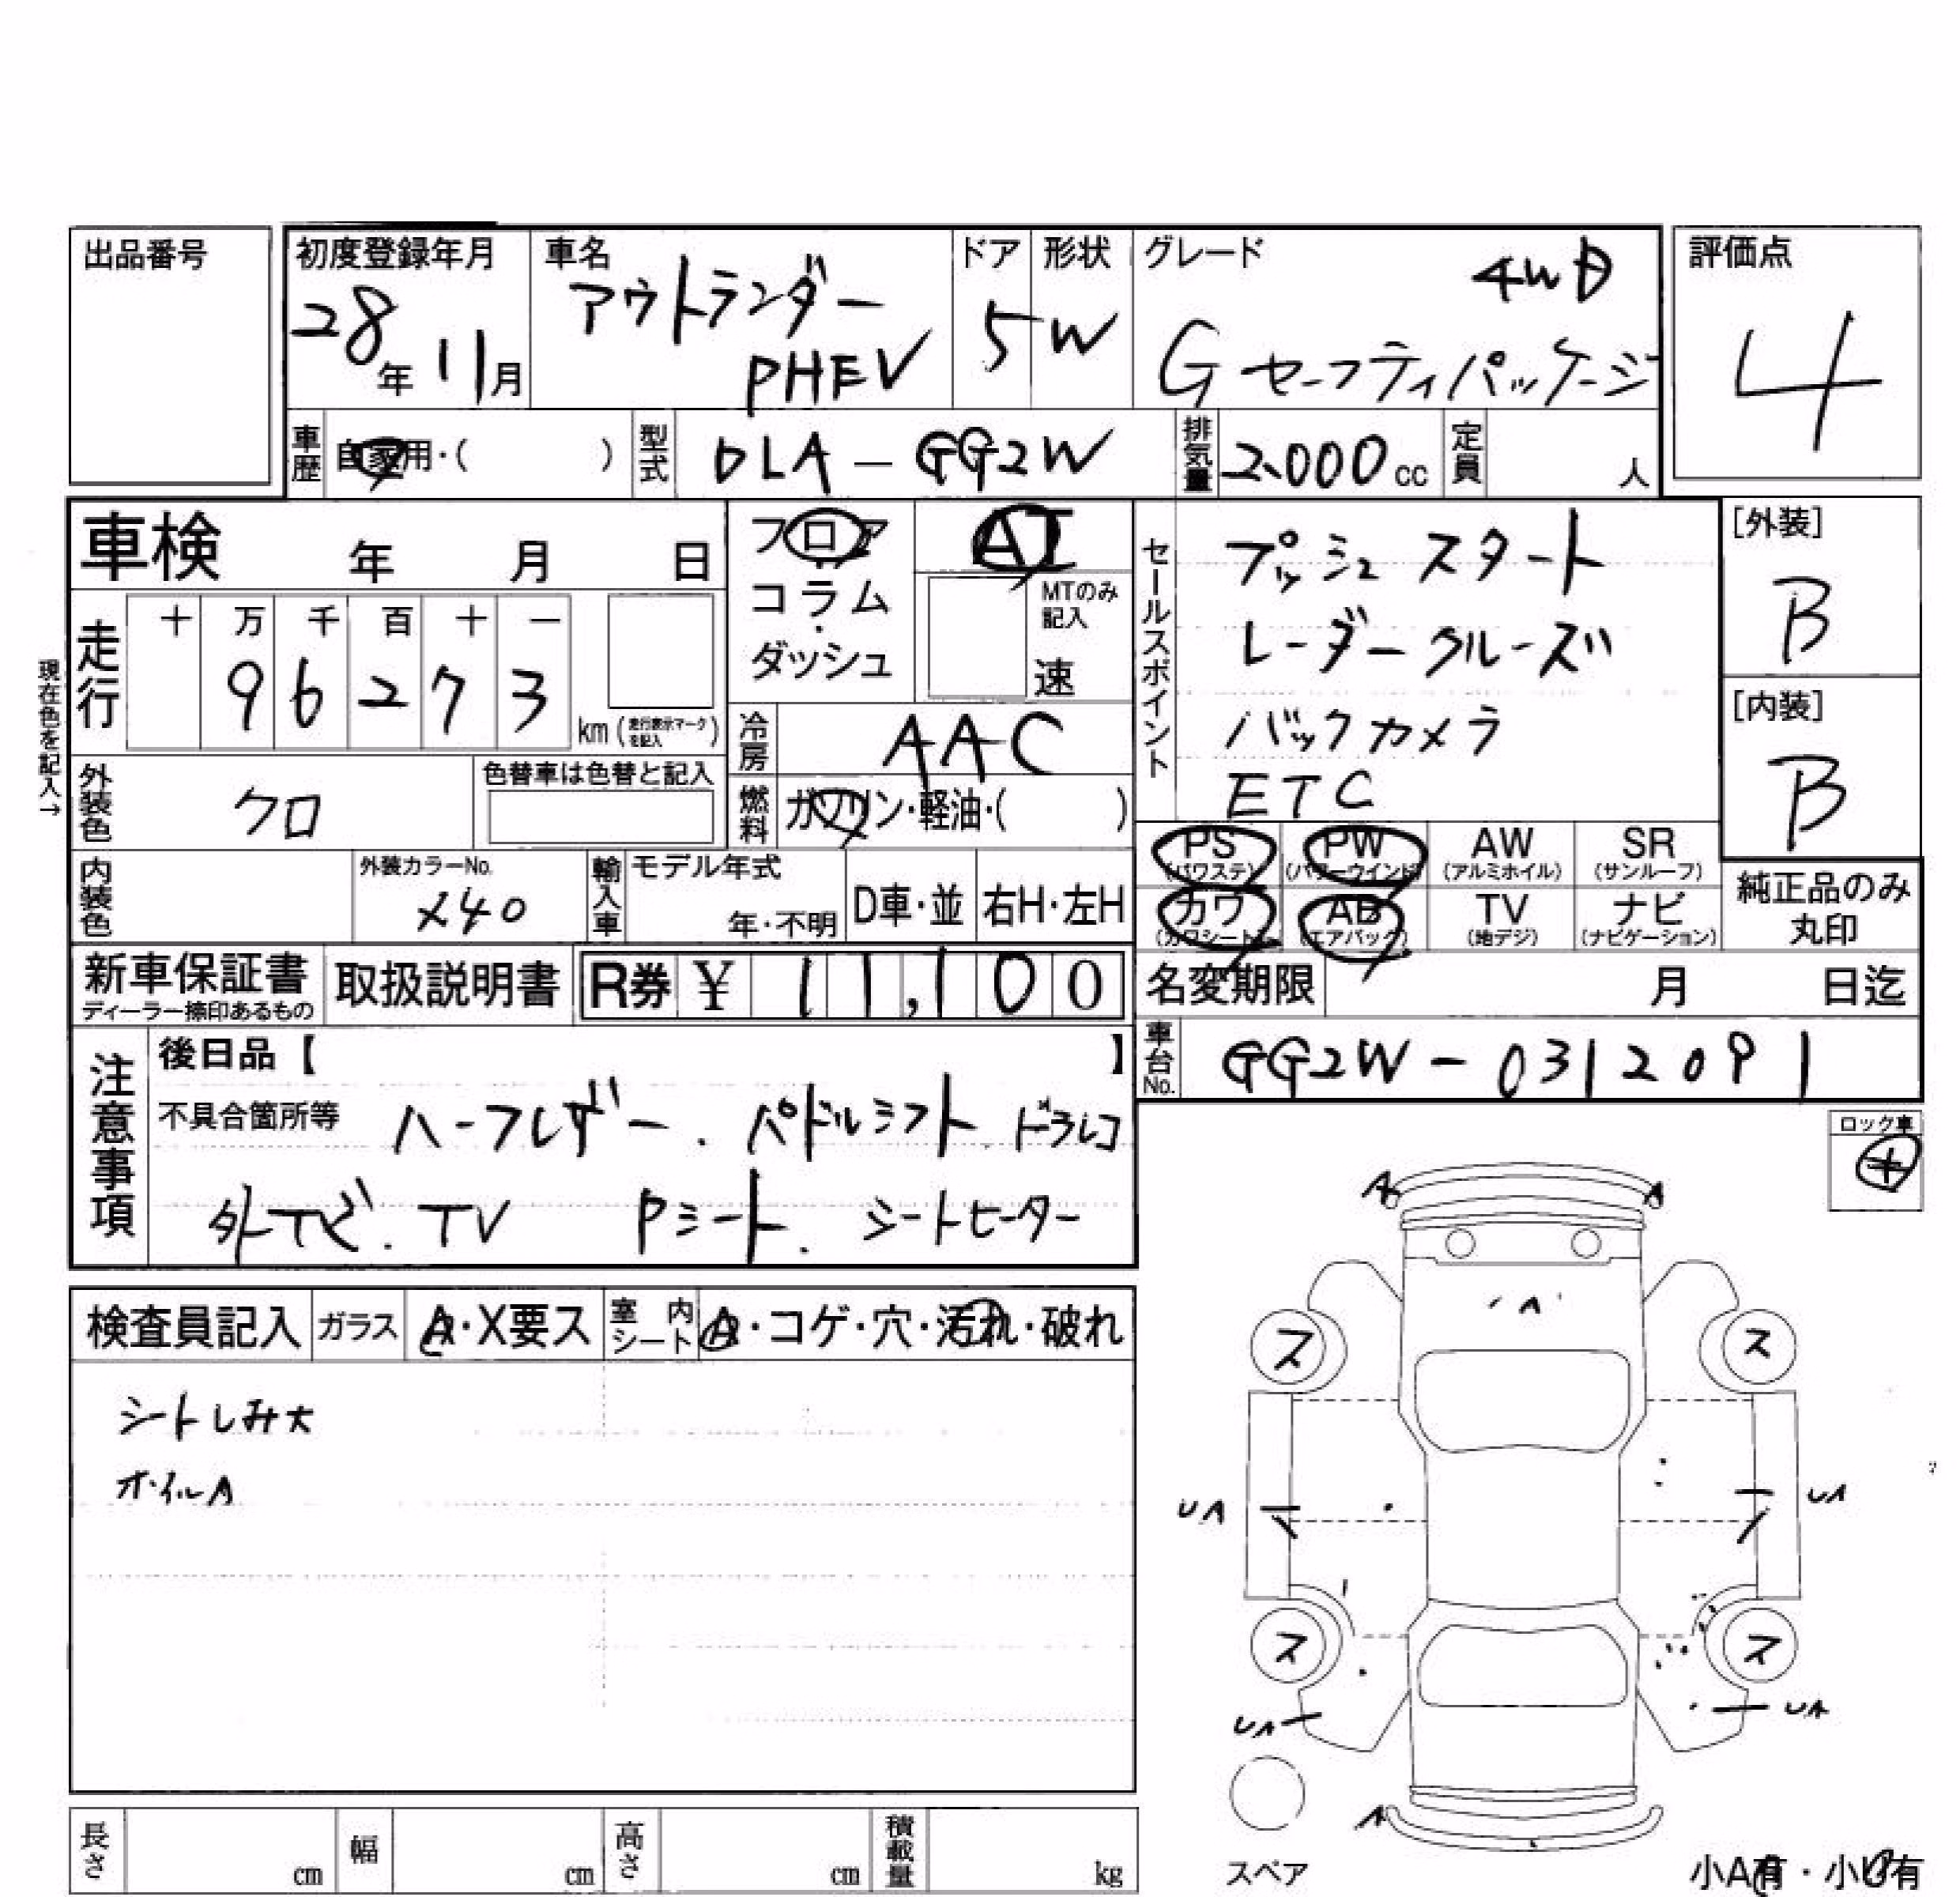 出品番号
初度登録年月
28年 11月
車名
アウトランダー
PHEV
ドア
5
形状
W
グレード
4WD
Gセーフティパッケージ
評価点
4
車歴
自家用・( )
型式
DLA-GG2W
排気量
2.000cc
定員
人
車検 年 月 日
フロア
コラム
・
ダッシュ
AT
MTのみ
記入
速
セールスポイント
プッシュスタート
レーダークルーズ
バックカメラ
ETC
[外装]
B
[内装]
B
現在色を記入→
走行
十 万 千 百 十 一
9 6 2 7 3
km(走行表示マークを記入)
冷房
AAC
外装色
クロ
色替車は色替と記入
燃料
ガソリン・軽油・( )
PS AW SR
PW
(パワステ) (パワーウインド) (アルミホイル) (サンルーフ)
カワ AB TV ナビ
(カワシート) (エアバック) (地デジ) (ナビゲーション)
純正品のみ
丸印
内装色
外装カラーNo.
X40
輸入車
モデル年式
年・不明
D車・並
右H・左H
新車保証書
ディーラー捺印あるもの
取扱説明書
R券 ¥ 11,100
名変期限 月 日迄
車台No.
GG2W-0312091
注意事項
後日品【 】
不具合箇所等 ハーフレザー. パドルシフト ドラレコ
外ナビ. TV Pシート. シートヒーター
ロック車
+
検査員記入
ガラス
A・X要ス
室内シート
A・コゲ・穴・汚れ・破れ
シートしみ大
ホイルA
A A
A
ス ス
UA UA
ス ス
UA UA
A
スペア
小A有・小U有
長さ cm
幅 cm
高さ cm
積載量 kg